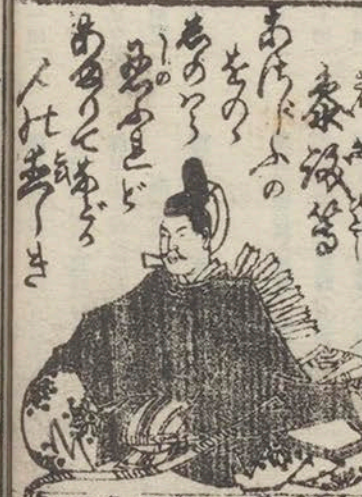 参議等
あさぢふの
をのゝ
しのハら
忍ふれど
あまりてなどか
人の恋しき